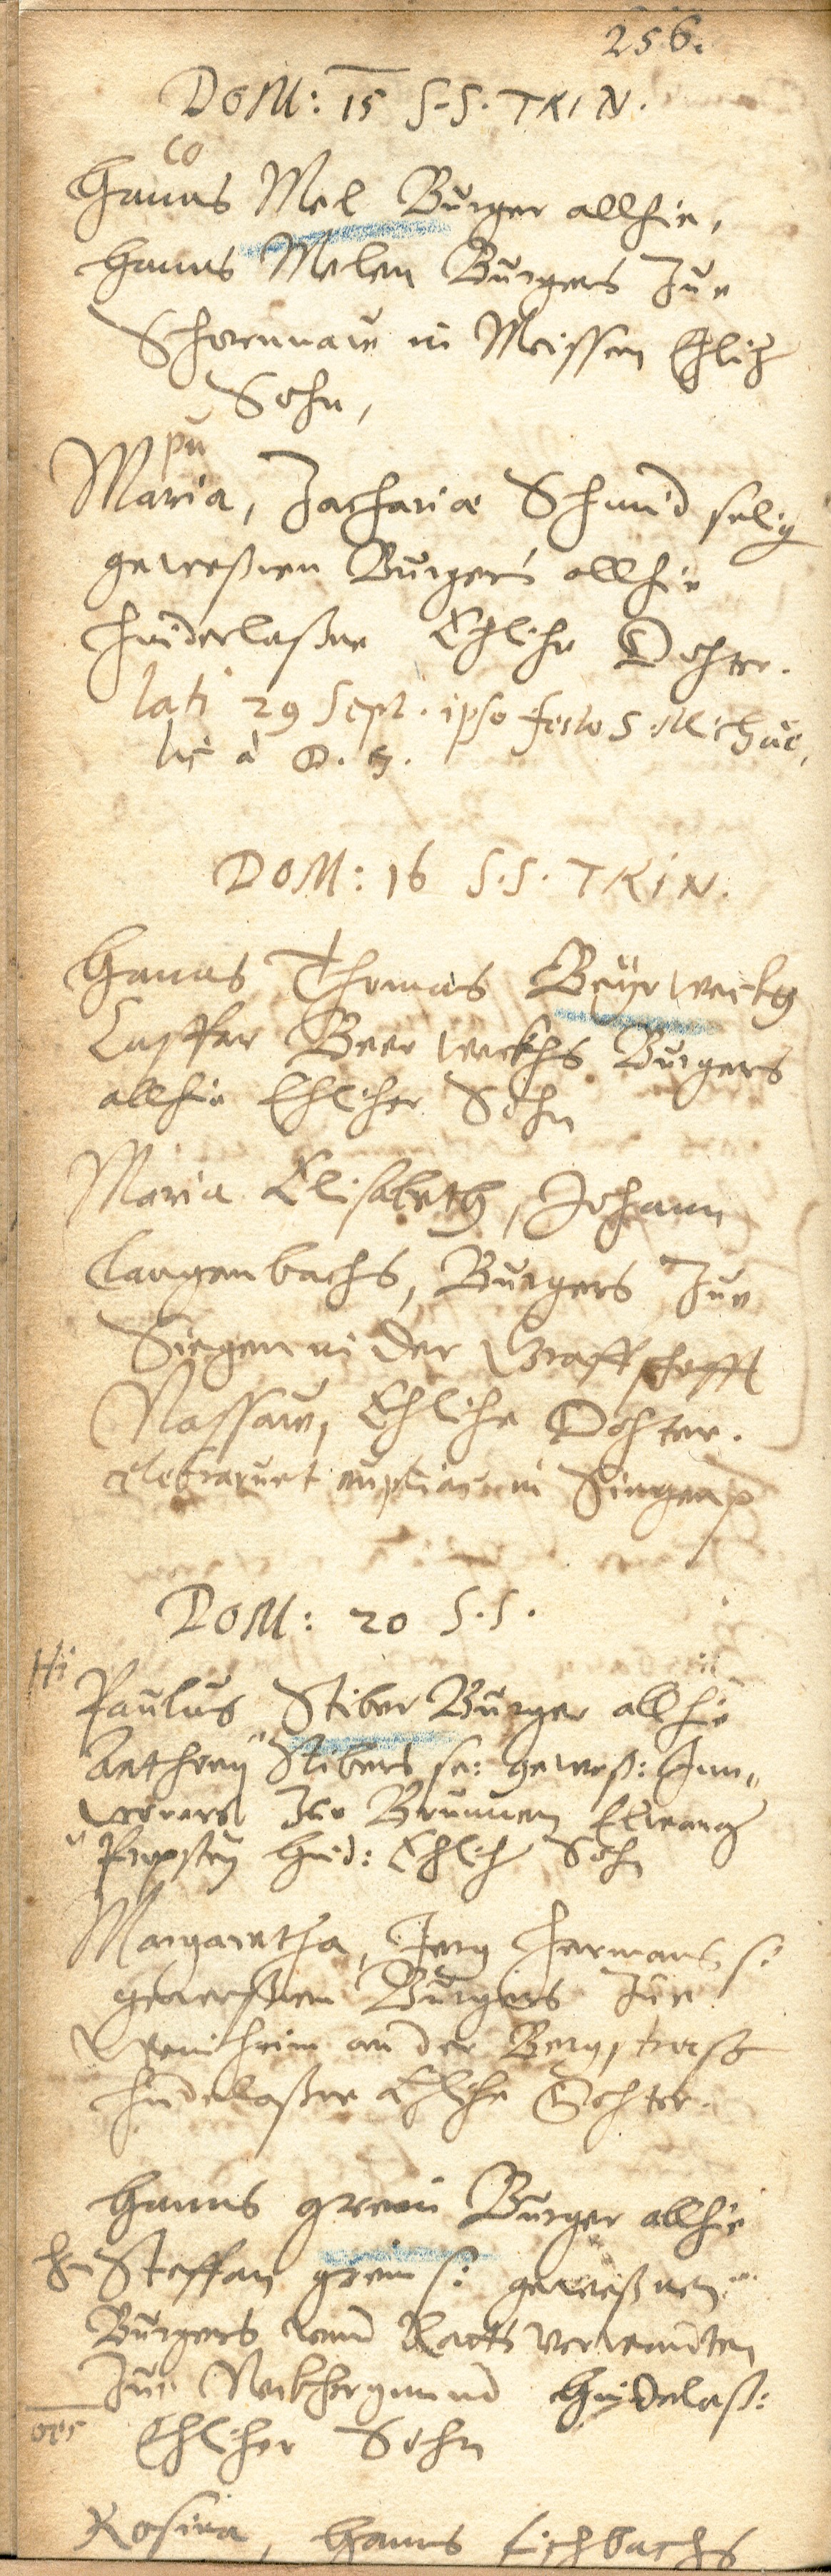 256.
DOM: 15 S.S. TRIN.
co
Hanns Mel Burger allhie,
Hanns Melen Burgers Zue
Schornnaw in Meissen Ehlich
Sohn,
pu
Maria, Zachariæ Schmid selig
geweßnen Burgers allhie
hinderlaßne Ehliche Dochter.
29 Sept. ipso festo S. Michae,
lis à
DOM: 16 S.S. TRIN.
Hanns Thomas Beÿrweckh
Casspar Beerweckhs Burgers
allhie Ehlicher Sohn
Maria Elisabeth, Johann
Langenbachs, Burgers Zue
Siegen in der Graffschafft
Nassaw, Ehliche Dochter.
celebrarunt nuptias in Siegen
DOM: 20 S.S.
Hi
Paulus Stiber Burger allhie
Anthonÿ Stibers se: geweß: Inn„
woners Zue Brunnen
Propsteÿ hind: Ehlich Sohn
Margaretha, Jerg Hermans s:
geweeßnen Burgers Zue
Weinheim an der Bergstraß
hindelaßne Ehliche Dochter.
Hanns grein Burger allhie
Steffan grein s: geweßnen
Burgers vnnd Raats verwandten
Zue Neckhergmünd hindelaß:
Ehlicher Sohn
Rosina, Hanns Eichbachs